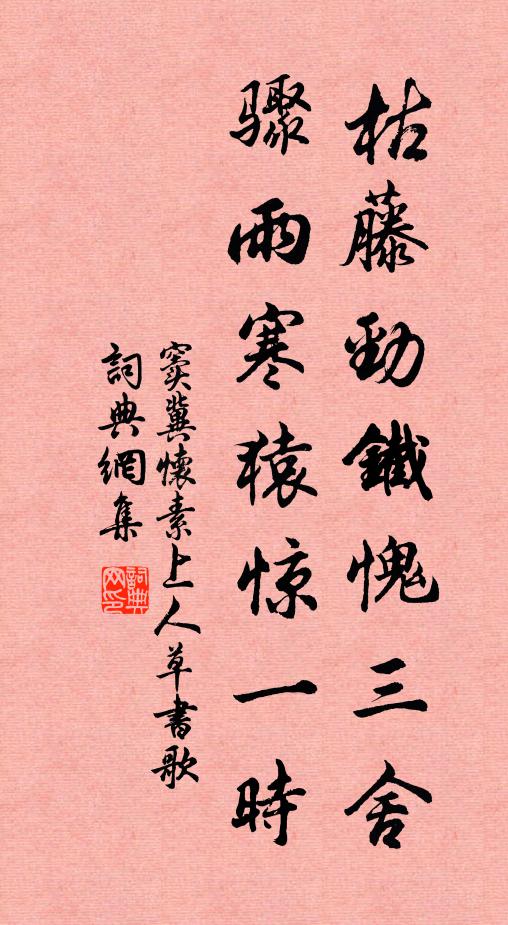 枯藤勁鐵愧三舍
驟雨寒猿惊一時
竇冀懷素上人草書歌
詞典網集
詞典網印